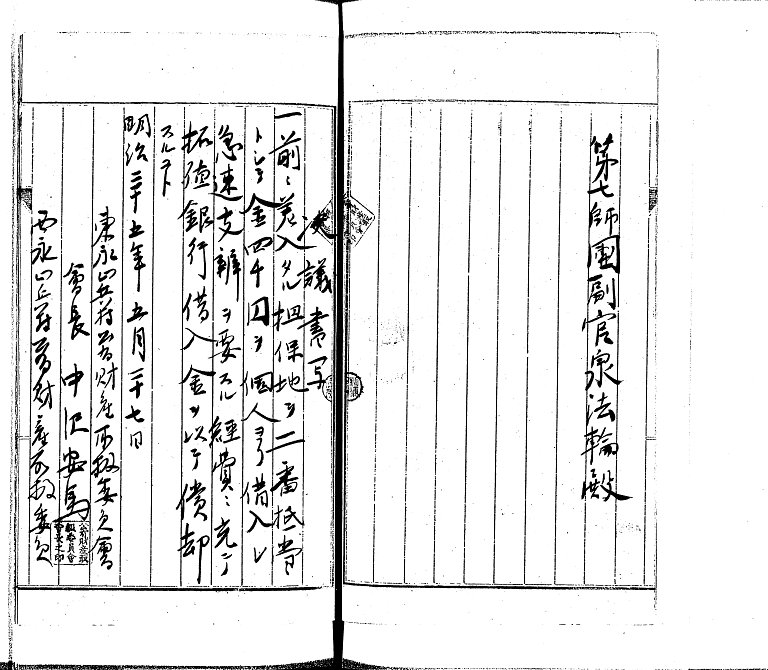 第七師團副官泉法輪殿
決議書写
一前ニ差入タル担保地ヲ二番抵当
トシテ金四千円ヲ個人ヨリ借入レ
急速支辦ヲ要スル経費ニ充テ
拓殖銀行借入金ヲ以テ償却
スルコト
明治三十五年五月二十七日
東永山兵村公有財産取扱委員會
會長 中沢安馬
西永山兵村公有財産取扱委員